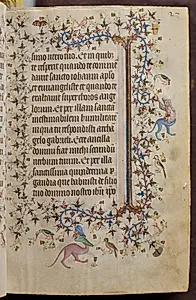 te respexit quando te comen
dauit sancto iohanni aplo
et euangeliste et quando te
exaltauit super choros ange
lorum. Et per illam sanctam
inestimabilem humilitatem
in qua tu respondisti archa
gelo gabrieli. Ecce ancilla
domini fiat michi secundum
uerbum tuum. Et per illa
sanctissima quindecim
gaudia que habuisti de filio
tuo domino nostro ihu xpo